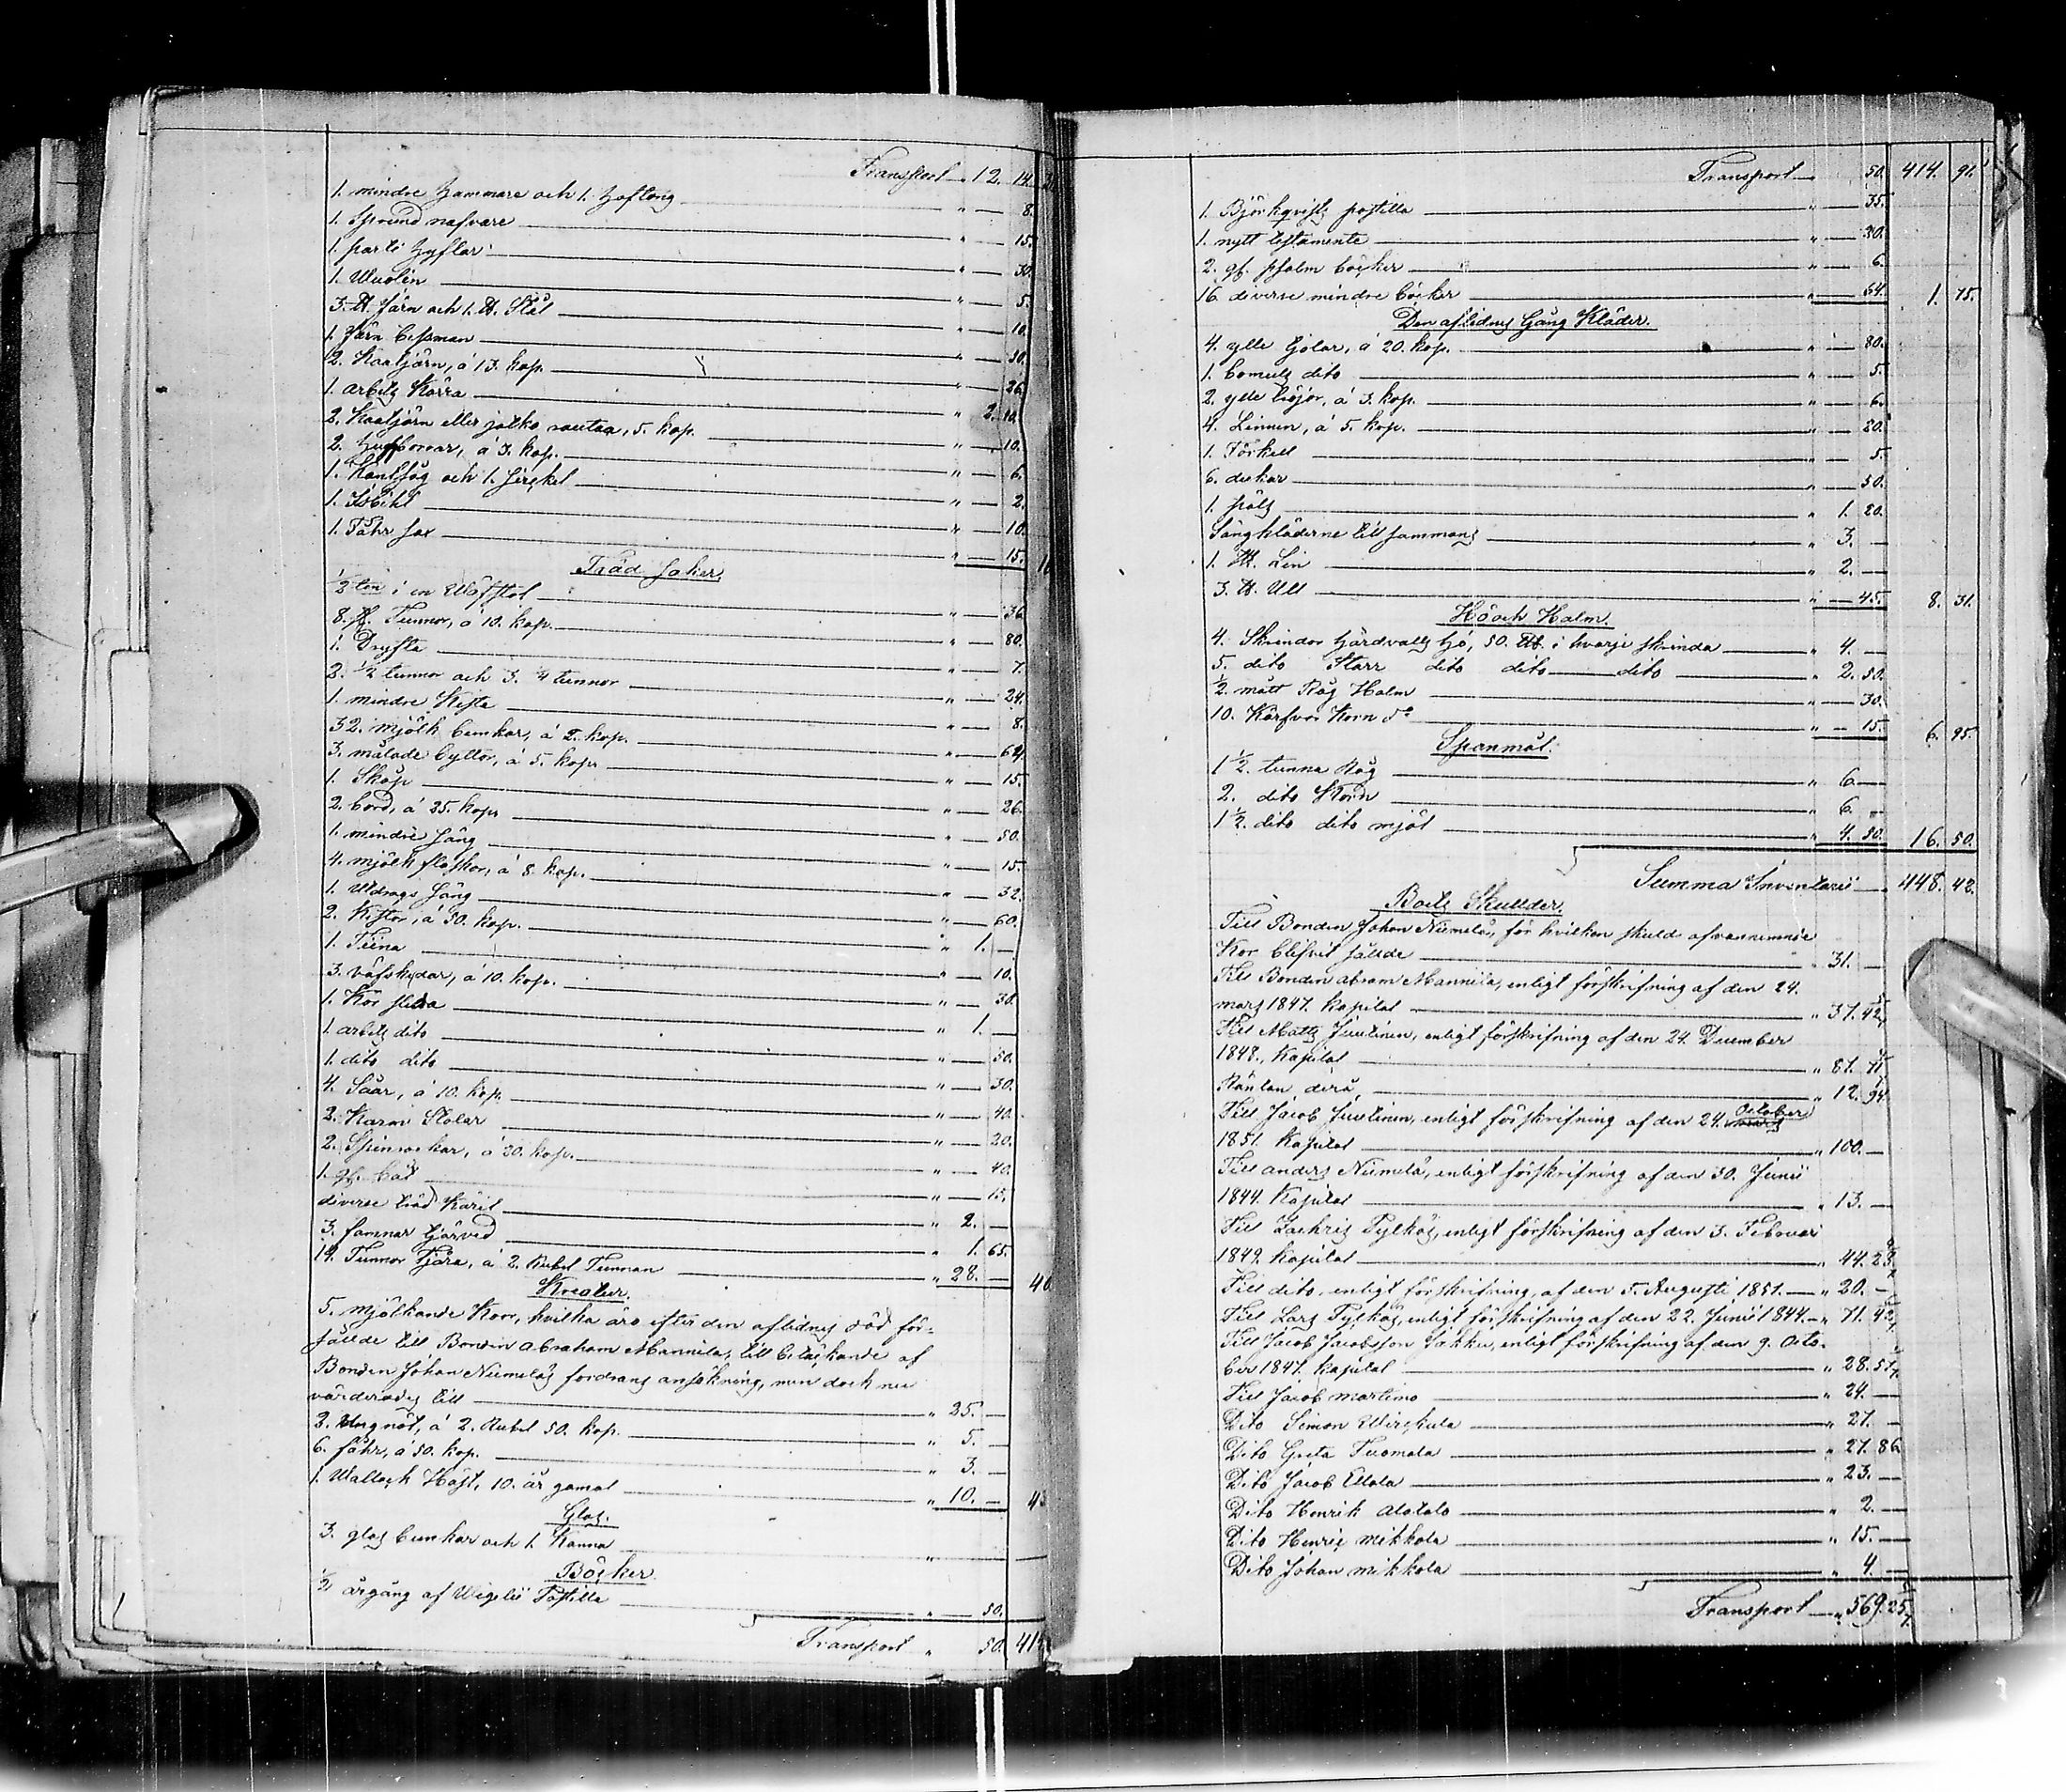 Transport „ 12. 14.
1. mindre Hammare och 1. Hoftång „ — 8.
1. Sprund nafvare „ — 15.
1. parti Hyflar „ — 30.
1. Wuolin „ — 5.
3. ℔. Järn och 1. ℔. Stål „ — 10.
1. Järn bessman „ — 50.
2. Kaatjärn, á 13. kop. „ — 26.
1. arbets Kärra „ 2. 10.
2. Kaatjärn eller jalko rautaa, 5. kop. „ — 10.
2. á 3. kop. „ — 6.
1. Handsåg och 1. Sirckel „ — 2.
1. Isbihl „ — 10.
1. Fåhr sax „ — 15.
Träd saker.
½ en i en Wäfstol „ — 36.
8. st. Tunnor, á 10. kop. „ — 80.
1. Dryfta „ — 7.
2. ½ tunnor och 3. ¼ tunnor „ — 24.
1. mindre Kista „ — 8.
32. mjölk bunkar, á 2. kop. „ — 64.
3. målade byttor, á 5. kop. „ — 15.
1. Skåp „ — 26.
2. bord, á 25. kop. „ — 50.
1. mindre säng „ — 15.
4. mjölk flaskor, á 8. kop. „ — 32.
1. Utdrags säng „ — 60.
2. Kistor, á 50. kop. „ 1. —
1. Tiina „ — 10.
3. väfskedar, á 10. kop. „ — 30.
1. Kör släda „ 1. —
1. arbets dito „ — 50.
1. dito dito „ — 30.
4. Såar, á 10. kop. „ — 40.
2. Karm Stolar „ — 20.
2. Spinrockar, á 20. kop. „ — 40.
1. gl. båt „ — 15.
diverse träd Käril „ 2. —
3. famnar tjärved „ 1. 65.
14. Tunnor Tjära, á 2. Rubel Tunnan „ 28. — 40
Kreatur.
5. mjölkande Kor, hvilka äro efter den aflidnes död för-
sållde till Bonden Abraham Mannila, till betäckande af
Bonden Johan Niemeläs fordrans ansökning, men dock nu
värderades till „ 25. —
2. Ungnöt, á 2. Rubel 50. kop. „ 5. —
6. fåhr, á 50. kop. „ 3. —
1. Wallack Häst, 10. år gamal „ 10. — 43
Glas.
3. glas bunkar och 1. Kanna „
Böcker.
½ årgång af Wegelii Postilla „ — 50.
Transport „ 50. 414
Transport — 50. 414. 91.
1. Björkqvists postilla „ — 35.
1. nytt testamente „ — 20.
2. gl. psalm böcker „ — 6.
16. diverse mindre böcker „ — 64. 1. 75.
Den aflidnes Gång Kläder.
4. ylle kjolar, á 20. kop. „ — 80.
1. bomuls dito „ — 5.
2. ylle tröjor, á 3. kop. „ — 6.
4. Linnen, á 5. kop. „ — 20.
1. Förkell „ — 5.
6. dukar „ — 50.
1. päls „ 1. 20.
Sängkläderne till sammans „ 3. —
1. ℔. Lin „ 2. —
3. ℔. Ull „ — 45. 8. 31.
Hö och Halm.
4. Skrindor hårdvalls hö, 50. ℔. i hvarje skrinda „ 4. —
5. dito Starr dito dito — dito „ 2. 50.
½. mått Råg Halm „ — 30.
10. Kärfvor Korn d:o „ — 15. 6. 95.
Spanmål.
1 ½. tunna Råg „ 6. —
2. dito Korn „ 6. —
1 ½. dito dito mjöl „ 4. 50. 16. 50.
Summa Inventarii — 448. 42.
Boets Skullder.
Till Bonden Johan Niemelä, för hvilken skuld ofvannemnde
Kor blifvit sållde „ 31. —
Till Bonden abram Mannila, enligt förskrifning af den 24.
mars 1847. kapital „ 37. 42
Till Matts Juutinen, enligt förskrifning af den 24. December
1848., Kapital „ 87. 71
Räntan derå „ 12. 94
Till Jacob Juutinen, enligt förskrifning af den 24. October
1851. Kapital „ 100. —
Till anders Niemelä, enligt förskrifning af den 30. Junii
1844. Kapital „ 13. —
Till Zachris Pylkäs, enligt förskrifning af den 3. Februari
1849. kapital „ 44. 28
Till dito, enligt förskrifning, af den 5. Augusti 1851. — „ 20. —
Till Lars Pylkäs, enligt förskrifning af den 22. Junii 1844. — „ 71. 42
Till Jacob Jacobsson Jakku, enligt förskrifning af den 9. Octo-
ber 1847. kapital „ 28. 57
Till Jacob martimo „ 24. —
Dito Simon „ 27. —
Dito Greta Tuomala „ 27. 86
Dito Jacob Ollala „ 23. —
Dito Henrik Alatalo „ 2. —
Dito Henric mikkola „ 15. —
Dito Johan mikkola „ 4. —
Transport — „ 569. 25